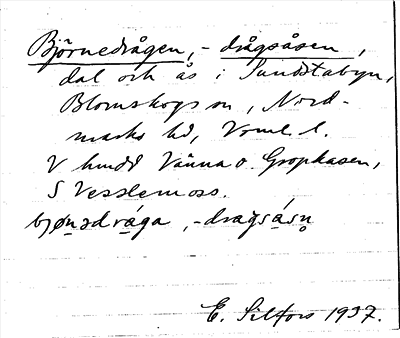 Björnedrågen, -drågsåsen,
dal och ås i Sundstabyn,
Blomskogs sn, Nord-
marks hd, Vrml. l.
V Vänna o. Gropkasen,
S Vesslemoss.
bjø̱nədrá̱ga, -dragsá̱sn̥
E. Silfors 1937.